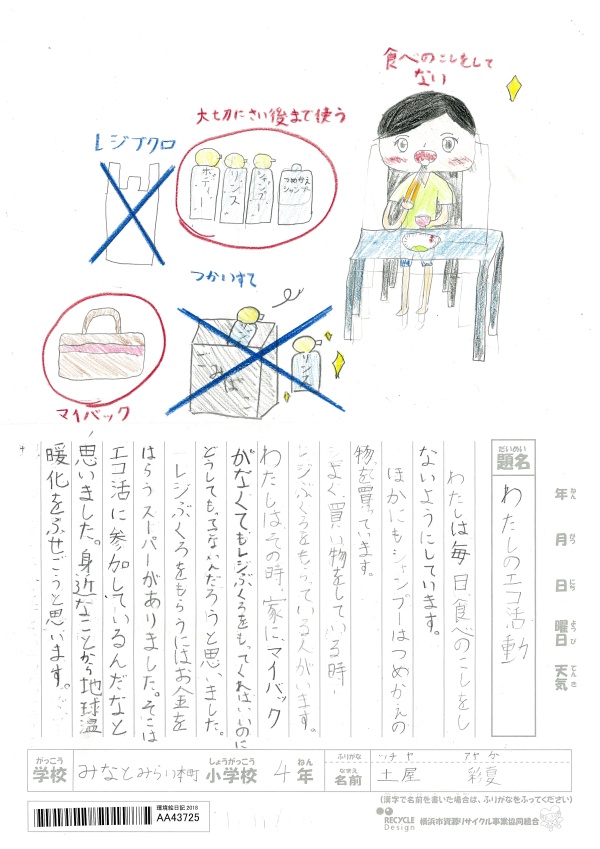 食べのこしをして
ない
大切にさい後まで使う
レジブクロ
ボディー
リンス
シャンプー
つめかえ
シャンプー
つかいすて
ごみばこ
リンス
マイバック
だいめい
題名
わたしのエコ活動
ねん
年
がつ
月
にち
日
ようび
曜日
てんき
天気
わたしは毎日食べのこしをし
ないようにしています。
ほかにもシャンプーはつめかえの
物を買っています。
よく、買い物をしている時、
レジぶくろをもらっている人がいます。
わたしは、その時、家に、マイバック
がなくてもレジぶくろをもってくればいいのに
どうしても、うないんだろうと思いました。
レジぶくろをもらうにはお金を
はらうスーパーがありました。そこは
エコ活に参加しているんだなと
思いました。身近なことから地球温
暖化をふせごうと思います。
がっこう
学校
みなとみらい本町
しょうがっこう
小学校
4
ねん
年
ふりがな
なまえ
名前
ツチヤ
アヤカ
土屋
彩夏
(漢字で名前を書いた場合は、ふりがなをふってください)
環境絵日記 2018
AA43725
RECYCLE
Design
横浜市資源リサイクル事業協同組合